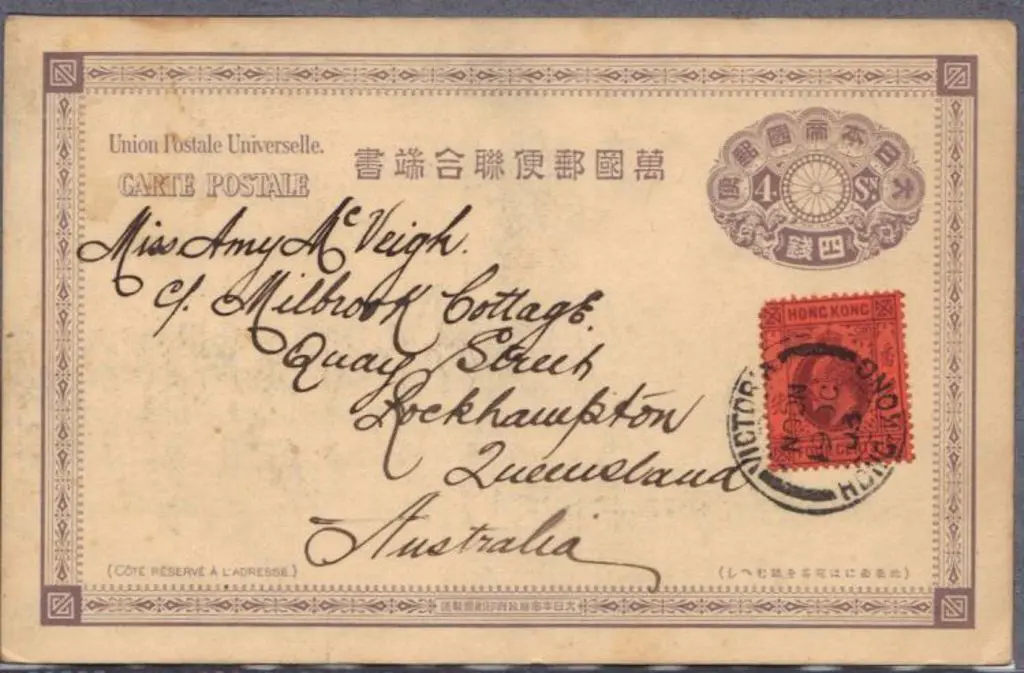 Union Postale Universelle.
CARTE POSTALE
書端合聯便郵國萬
便郵國帝本日大
4 Sn.
錢四
Miss Amy McVeigh.
c/. Milbrook Cottage.
Quay Street
Rockhampton
Queensland
Australia
HONG KONG
VICTORIA
HONG KONG
NOON
(CÔTÉ RÉSERVÉ À L'ADRESSE.)